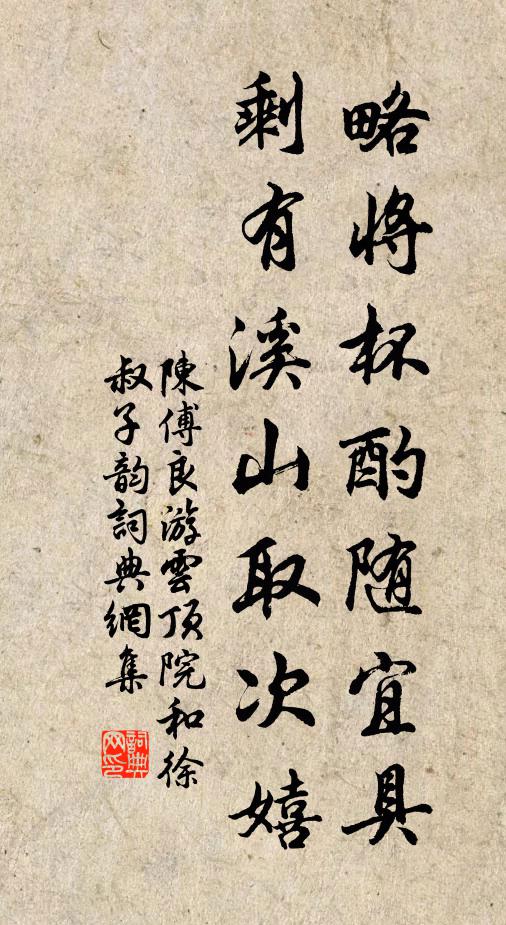 略将杯酌随宜具
剩有溪山取次嬉
陳傅良游雲頂院和徐
叔子韵詞典網集
詞典
网印